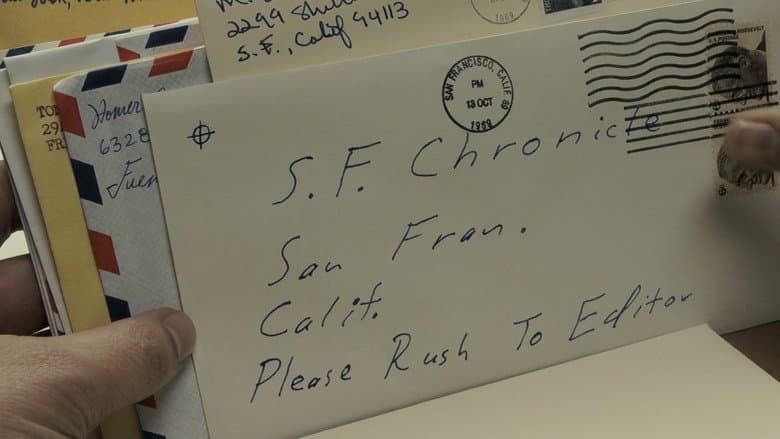 2299
S.F., Calif 94113
1969
TO
29
FR
Homer
6328
SAN FRANCISCO, CALIF
PM
13 OCT
1969
S.F. Chronicle
San Fran.
Calif.
Please Rush To Editor
ROOSEVELT
U.S. POSTAGE
6¢
6¢